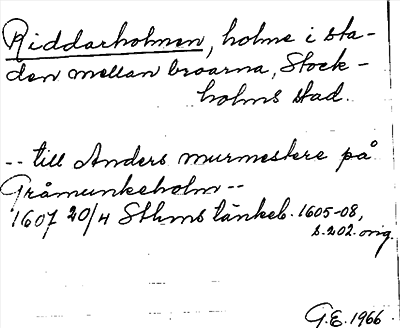 Riddarholmen, holme i sta-
den mellan broarna, Stock-
holms stad.
-- till Anders murmestere på
Gråmunkeholm --
1607 20/4 Sthms tänkeb. 1605-08,
s. 202. orig.
G.E. 1966.